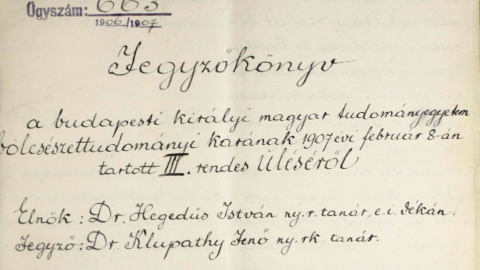 Ügyszám: 663
1906/1907
Jegyzőkönyv
a budapesti királyi magyar tudományegyetem
bölcsészettudományi karának 1907 évi február 8-án
tartott III. rendes üléséről
Elnök: Dr. Hegedüs István ny. r. tanár, e. i. dékán.
Jegyző: Dr. Klupathy Jenő ny. rk. tanár.